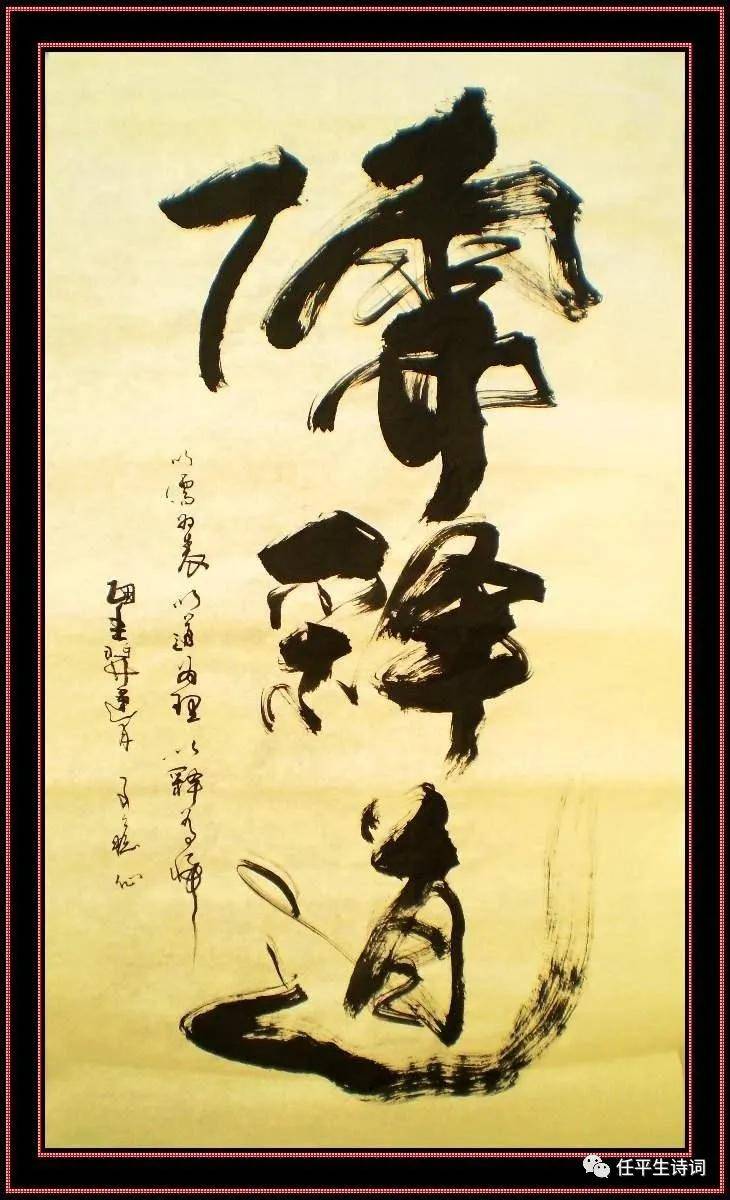 儒
释
道
以儒为表 以道为理 以释为悟
任平生诗词